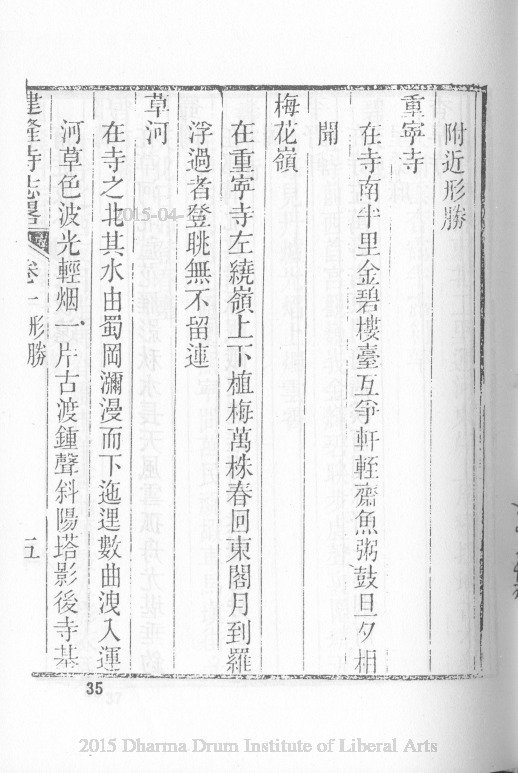 附近形勝
重寜寺
在寺南半里金碧樓臺互爭軒輊齋魚粥鼓旦夕相
聞
梅花嶺
在重寜寺左繞嶺上下植梅萬株春回東閣月到羅
浮過者登眺無不留連
草河
在寺之北其水由蜀岡瀰漫而下迤逗數曲洩入運
河草色波光輕烟一片古渡鍾聲斜陽塔影後寺基
建隆寺志畧 卷一 形勝 五
35
2015 Dharma Drum Institute of Liberal Arts